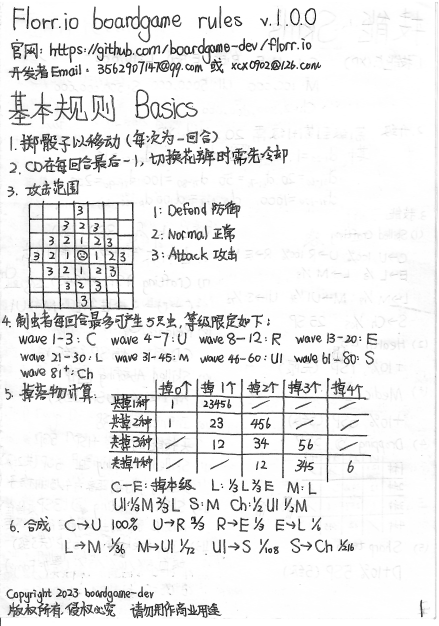 Florr.io boardgame rules v.1.0.0
官网: https://github.com/boardgame-dev/florr.io
开发者Email: 3562907147@qq.com 或 xcx0902@126.com
基本规则 Basics
1. 掷骰子以移动 (每次为一回合)
2. CD在每回合最后-1, 切换花瓣时需先冷却
3. 攻击范围
3
3 2 3
3 2 1 2 3
3 2 1 1 2 3
3 2 1 2 3
3 2 3
3
1: Defend 防御
2: Normal 正常
3: Attack 攻击
4. 制虫者每回合最多可产生5只虫, 等级限定如下:
wave 1-3: C wave 4-7: U wave 8-12: R wave 13-20: E
wave 21-30: L wave 31-45: M wave 46-60: Ul wave 61-80: S
wave 81+: Ch
5. 掉落物计算: 掉0个 掉1个 掉2个 掉3个 掉4个
共掉1种 1 23456 / / /
共掉2种 1 23 456 / /
共掉3种 / 12 34 56 /
共掉4种 / / 12 345 6
C-E: 掉本级 L: 1/3 L 2/3 E M: L
Ul: 1/3 M 2/3 L S: M Ch: 1/2 Ul 1/3 M
6. 合成 C→U 100% U→R 2/3 R→E 1/3 E→L 1/6
L→M 1/36 M→Ul 1/72 Ul→S 1/108 S→Ch 1/216
Copyright 2023 boardgame-dev
版权所有 侵权必究 请勿用作商业用途
1